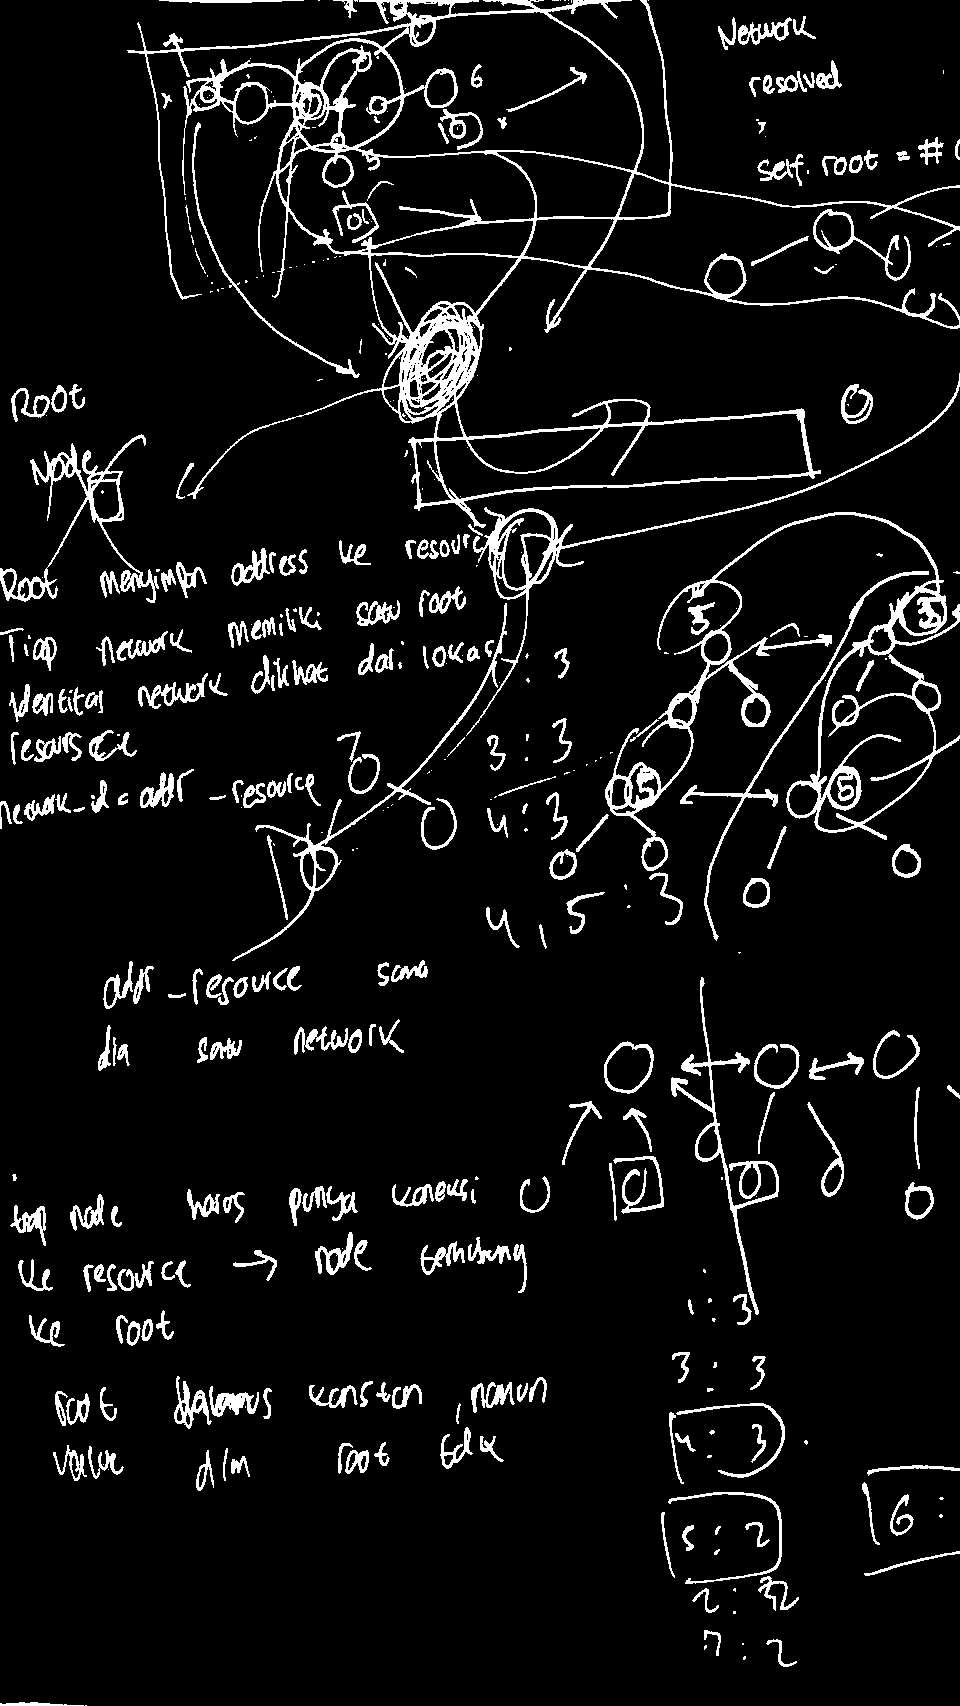 6
Network
resolved
self.root = #
3
Root
Node
Root menyimpan address ke resource
Tiap network memiliki satu root
Identitas network dilihat dari lokasi
resource
network_id = addr_resource
: 3
3 : 3
4 : 3
4, 5 : 3
5
3
5
5
addr_resource sama
dia satu network
tiap node harus punya koneksi
ke resource → node terhubung
ke root
root konstan, namun
value dlm root tdk
1 : 3
3 : 3
4 : 3
5 : 2
6 :
2 : 32
7 : 2